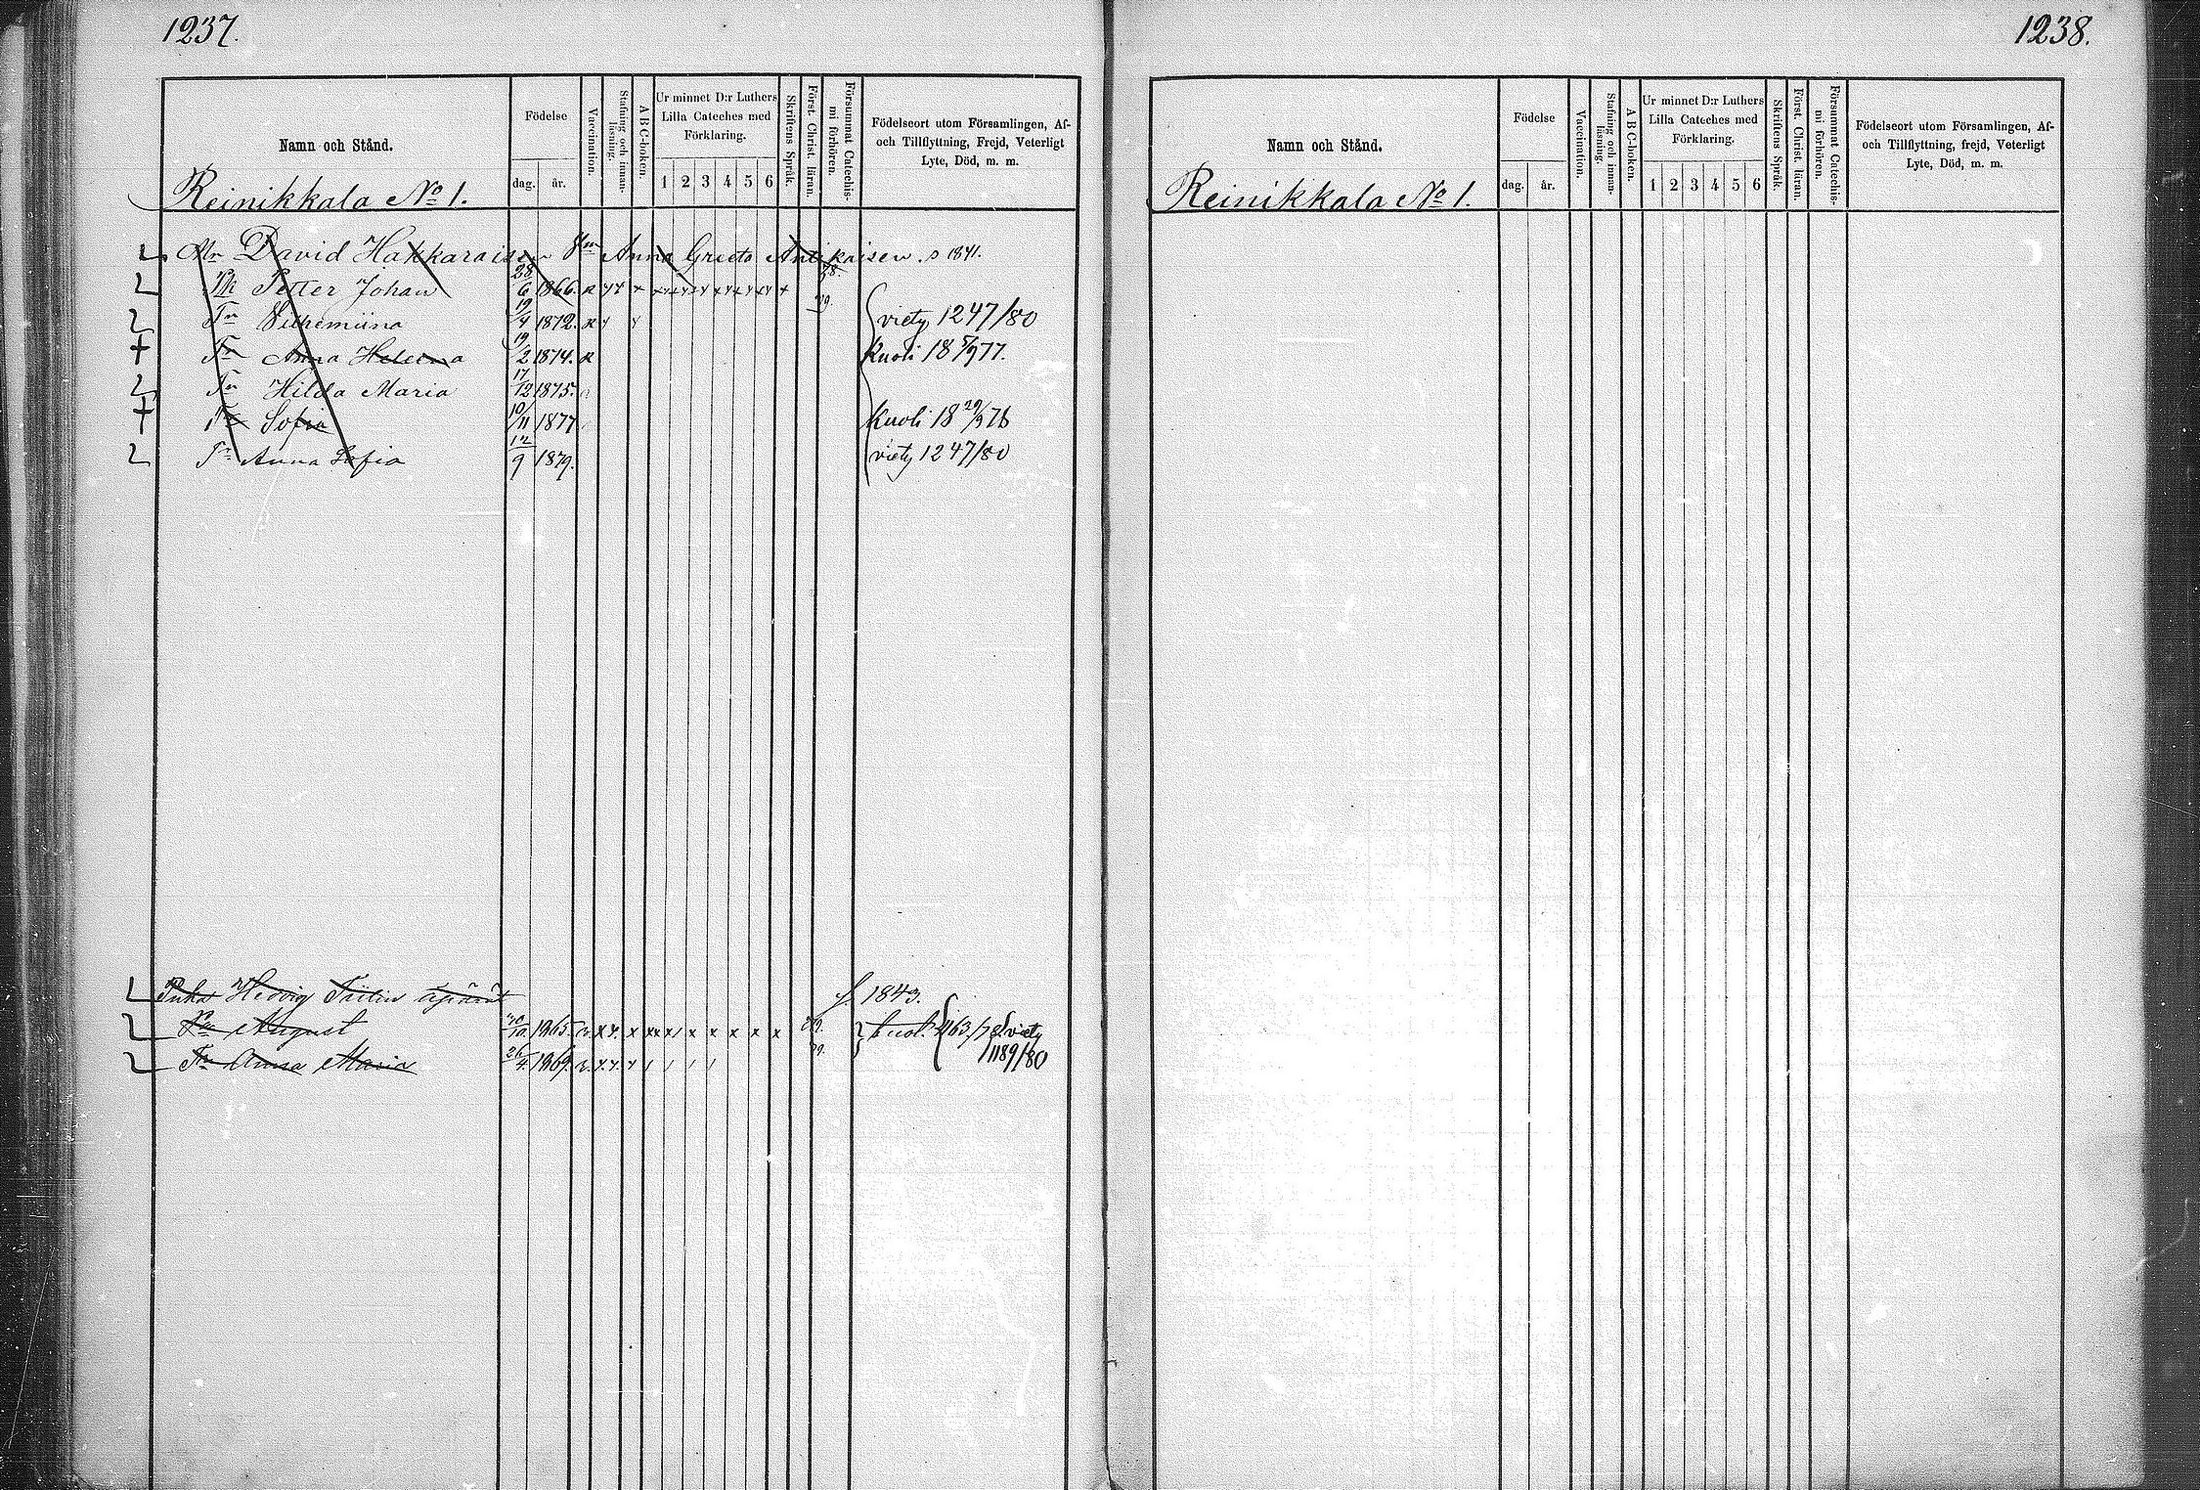 1237.
Namn och Stånd.
Födelse
dag. år.
Vaccination.
Stafning och innanläsning.
A B C-boken.
Ur minnet D:r Luthers Lilla Cateches med Förklaring.
1 2 3 4 5 6
Skriftens Språk.
Först. Christ. läran.
Försummat Catechismi förhören.
Födelseort utom Församlingen, Af- och Tillflyttning, Frejd, Veterligt Lyte, Död, m. m.
Reinikkala No 1.
David Hakkaraisen Anna Greeta Antikaisen. s 1841.
Petter Johan 28/6 1866.
Tr Vilhemiina 19/4 1872. viety 1247/80
Tr Anna Heleena 19/2 1874. Kuoli 18 5/9 77.
Tr Hilda Maria 17/12 1875.
Tr Sofia 10/11 1877 Kuoli 18 29/9 78
Tr Anna Sofia 12/9 1879. viety 1247/80
Hedvig äpärät f. 1843.
August 1865. 1163/78 viety
Tr Anna Maria 26/4 1869. 79. 1189/80
1238.
Namn och Stånd.
Födelse
dag. år.
Vaccination.
Stafning och innanläsning.
A B C-boken.
Ur minnet D:r Luthers Lilla Cateches med Förklaring.
1 2 3 4 5 6
Skriftens Språk.
Först. Christ. läran.
Försummat Catechismi förhören.
Födelseort utom Församlingen, Af- och Tillflyttning, frejd, Veterligt Lyte, Död, m. m.
Reinikkala No 1.